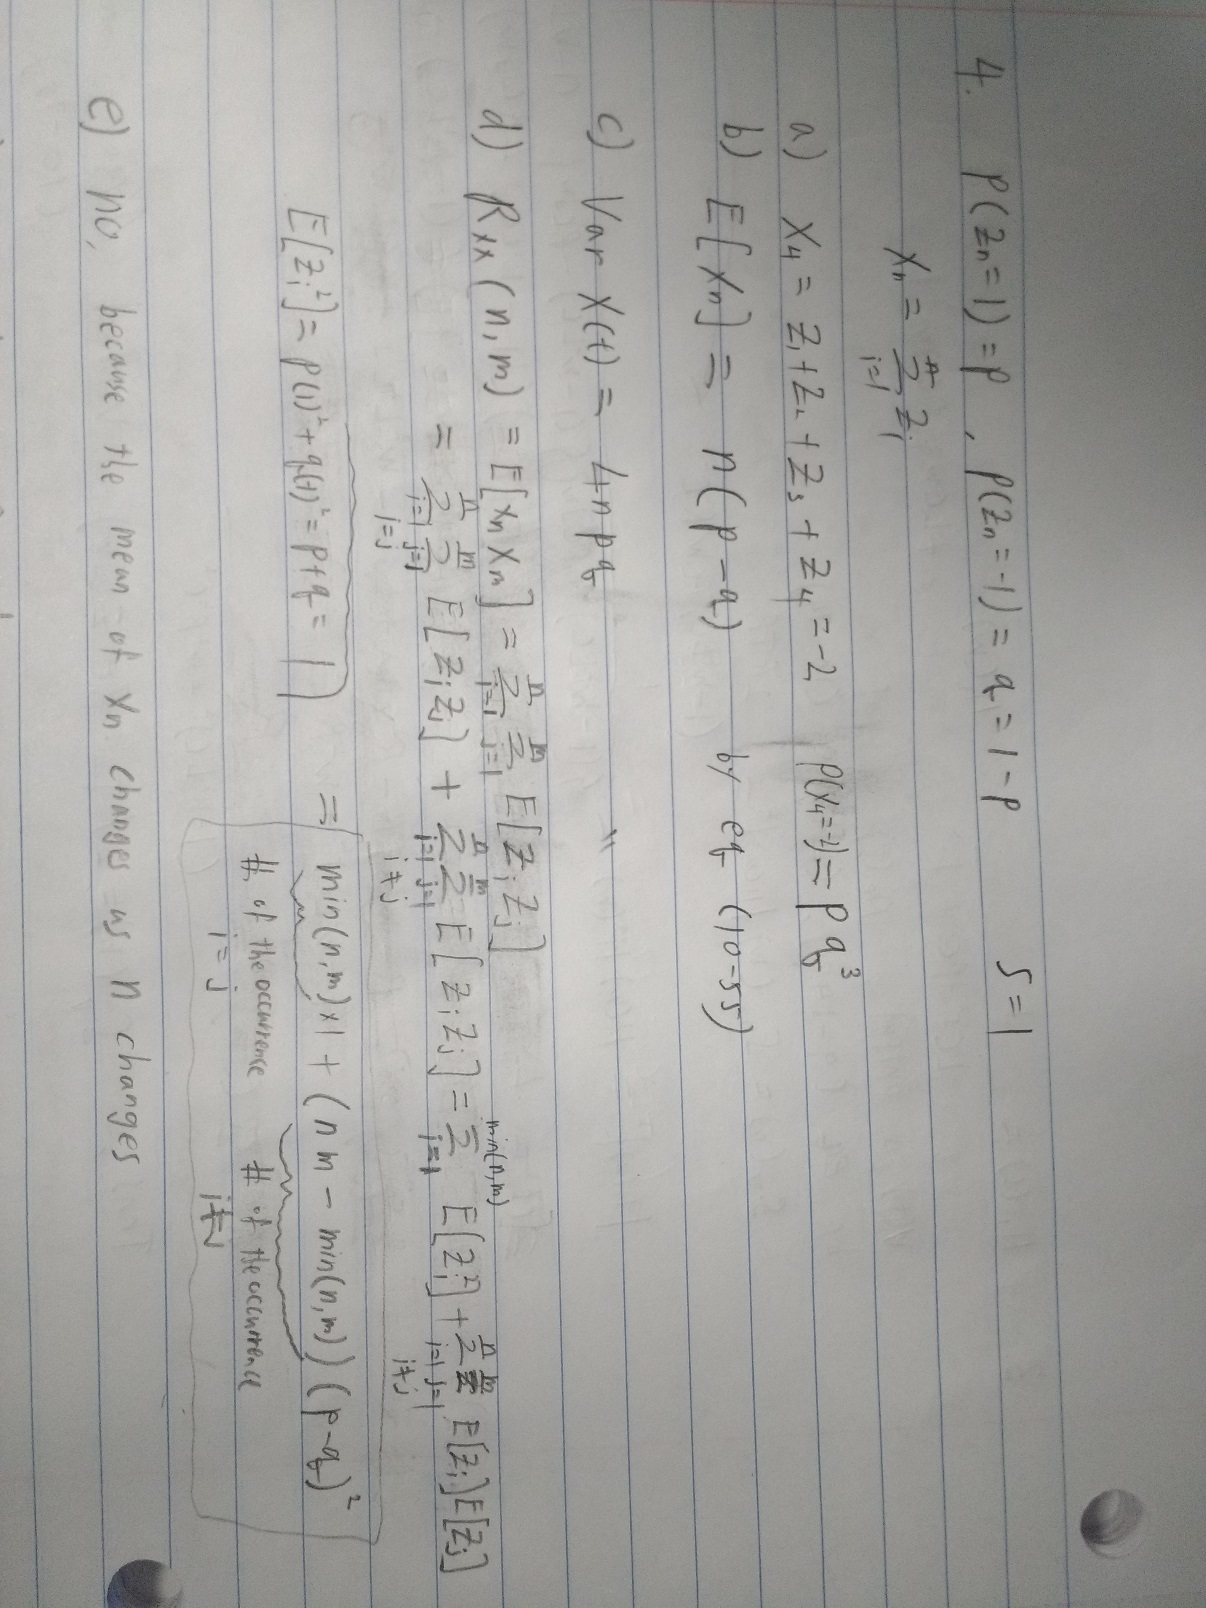 4. P(Zn=1)=p, P(Zn=-1)=q=1-p S=1
Xn = Σ_{i=1}^{n} Zi
a) X4 = Z1+Z2+Z3+Z4=-2 P(X4=-2)=pq³
b) E[Xn] = n(p-q) by eq (10-55)
c) Var X(t) = 4npq "
d) Rxx(n,m) = E[XnXm] = Σ_{i=1}^{n} Σ_{j=1}^{m} E[ZiZj]
= Σ_{i=1}^{n} Σ_{j=1}^{m} E[ZiZj] + Σ_{i=1}^{n} Σ_{j=1}^{m} E[ZiZj] = Σ_{i=1}^{min(n,m)} E[Zi²] + Σ_{i=1}^{n} Σ_{j=1}^{m} E[Zi]E[Zj]
i=j i≠j i≠j
E[Zi²] = p(1)²+q(-1)²=p+q=1 = min(n,m)x1 + (nm-min(n,m))(p-q)²
# of the occurrence # of the occurrence
i=j i≠j
e) no, because the mean of Xn changes as n changes